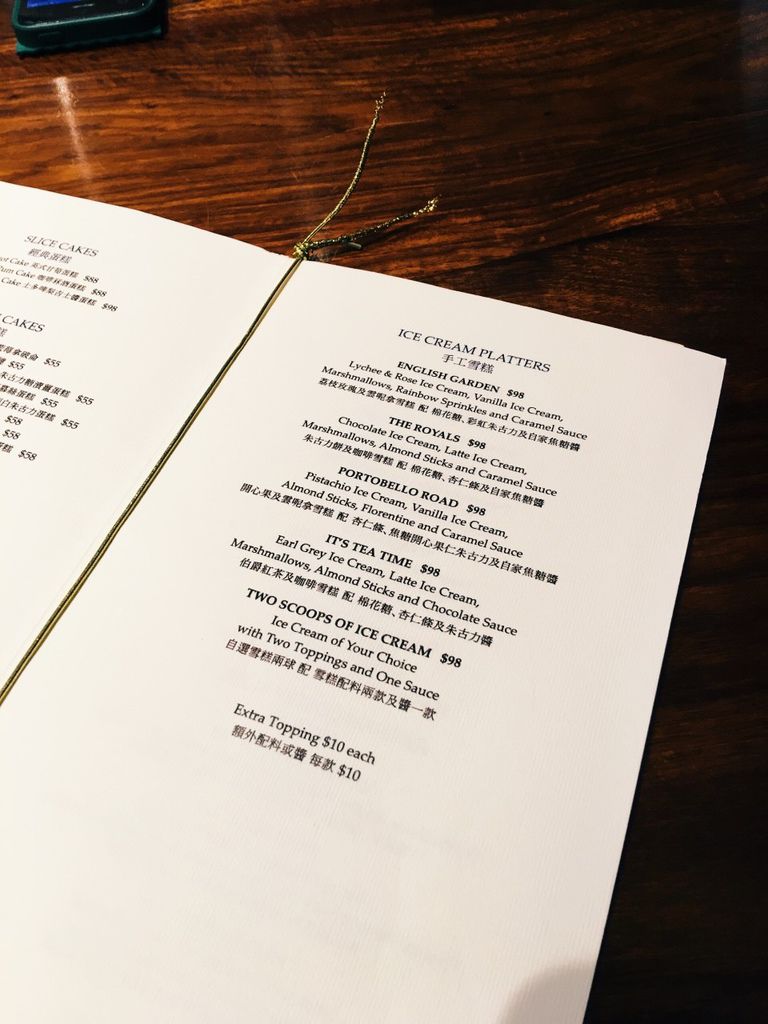 SLICE CAKES
經典蛋糕
Cake 英式甘筍蛋糕 $88
Cake 咖啡核桃蛋糕 $88
Cake 士多啤梨吉士醬蛋糕 $98
CAKES
$55
$55
$55
白朱古力蛋糕 $55
$58
$58
$58
ICE CREAM PLATTERS
手工雪糕
ENGLISH GARDEN $98
Lychee & Rose Ice Cream, Vanilla Ice Cream,
Marshmallows, Rainbow Sprinkles and Caramel Sauce
荔枝玫瑰及雲呢拿雪糕 配 棉花糖、彩虹朱古力及自家焦糖醬
THE ROYALS $98
Chocolate Ice Cream, Latte Ice Cream,
Marshmallows, Almond Sticks and Caramel Sauce
朱古力餅及咖啡雪糕 配 棉花糖、杏仁條及自家焦糖醬
PORTOBELLO ROAD $98
Pistachio Ice Cream, Vanilla Ice Cream,
Almond Sticks, Florentine and Caramel Sauce
開心果及雲呢拿雪糕 配 杏仁條、焦糖開心果仁朱古力及自家焦糖醬
IT'S TEA TIME $98
Earl Grey Ice Cream, Latte Ice Cream,
Marshmallows, Almond Sticks and Chocolate Sauce
伯爵紅茶及咖啡雪糕 配 棉花糖、杏仁條及朱古力醬
TWO SCOOPS OF ICE CREAM $98
Ice Cream of Your Choice
with Two Toppings and One Sauce
自選雪糕兩球 配 雪糕配料兩款及醬一款
Extra Topping $10 each
額外配料或醬 每款 $10